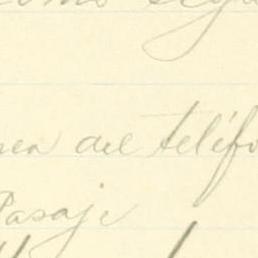 como
nea del teléfo
Pasaje